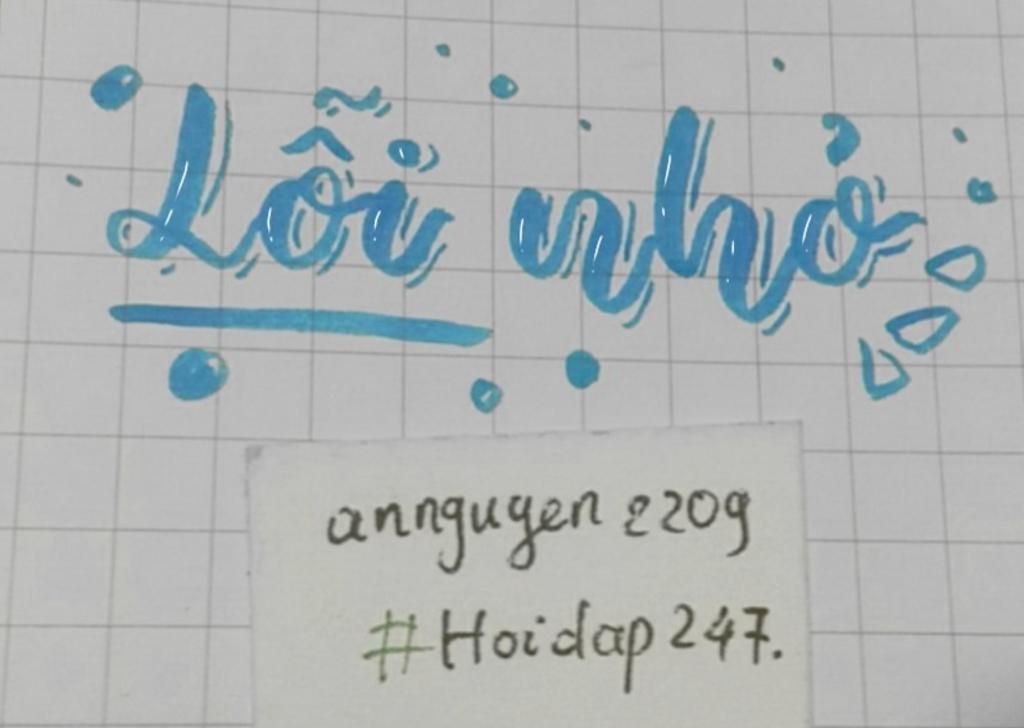 Lỗi nhỏ
annguyen 2209
#Hoidap247.